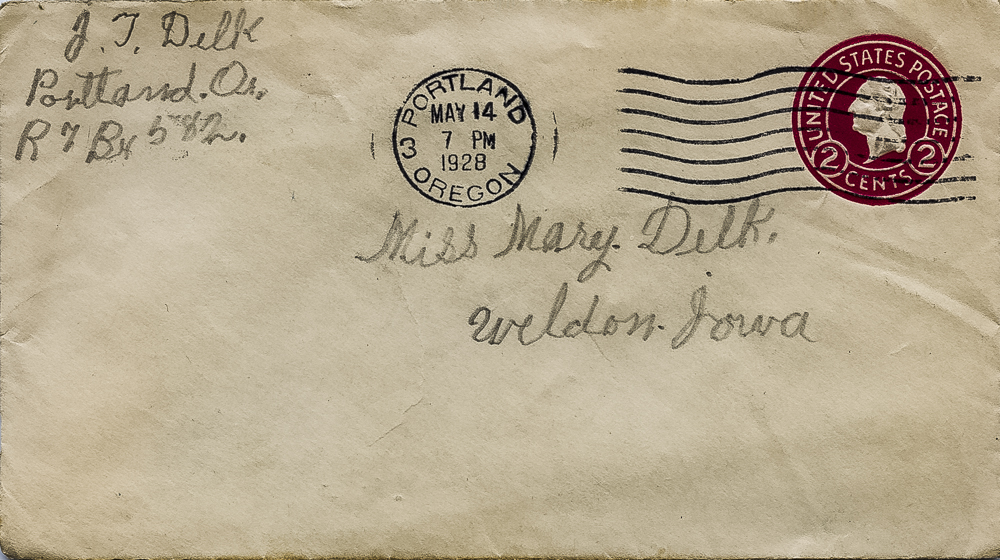 J. T. Delk
Portland. Or.
R 7 Bx 582.
PORTLAND
MAY 14
7 PM
1928
3 OREGON
UNITED STATES POSTAGE
2 CENTS 2
Miss Mary. Delk.
Weldon. Iowa